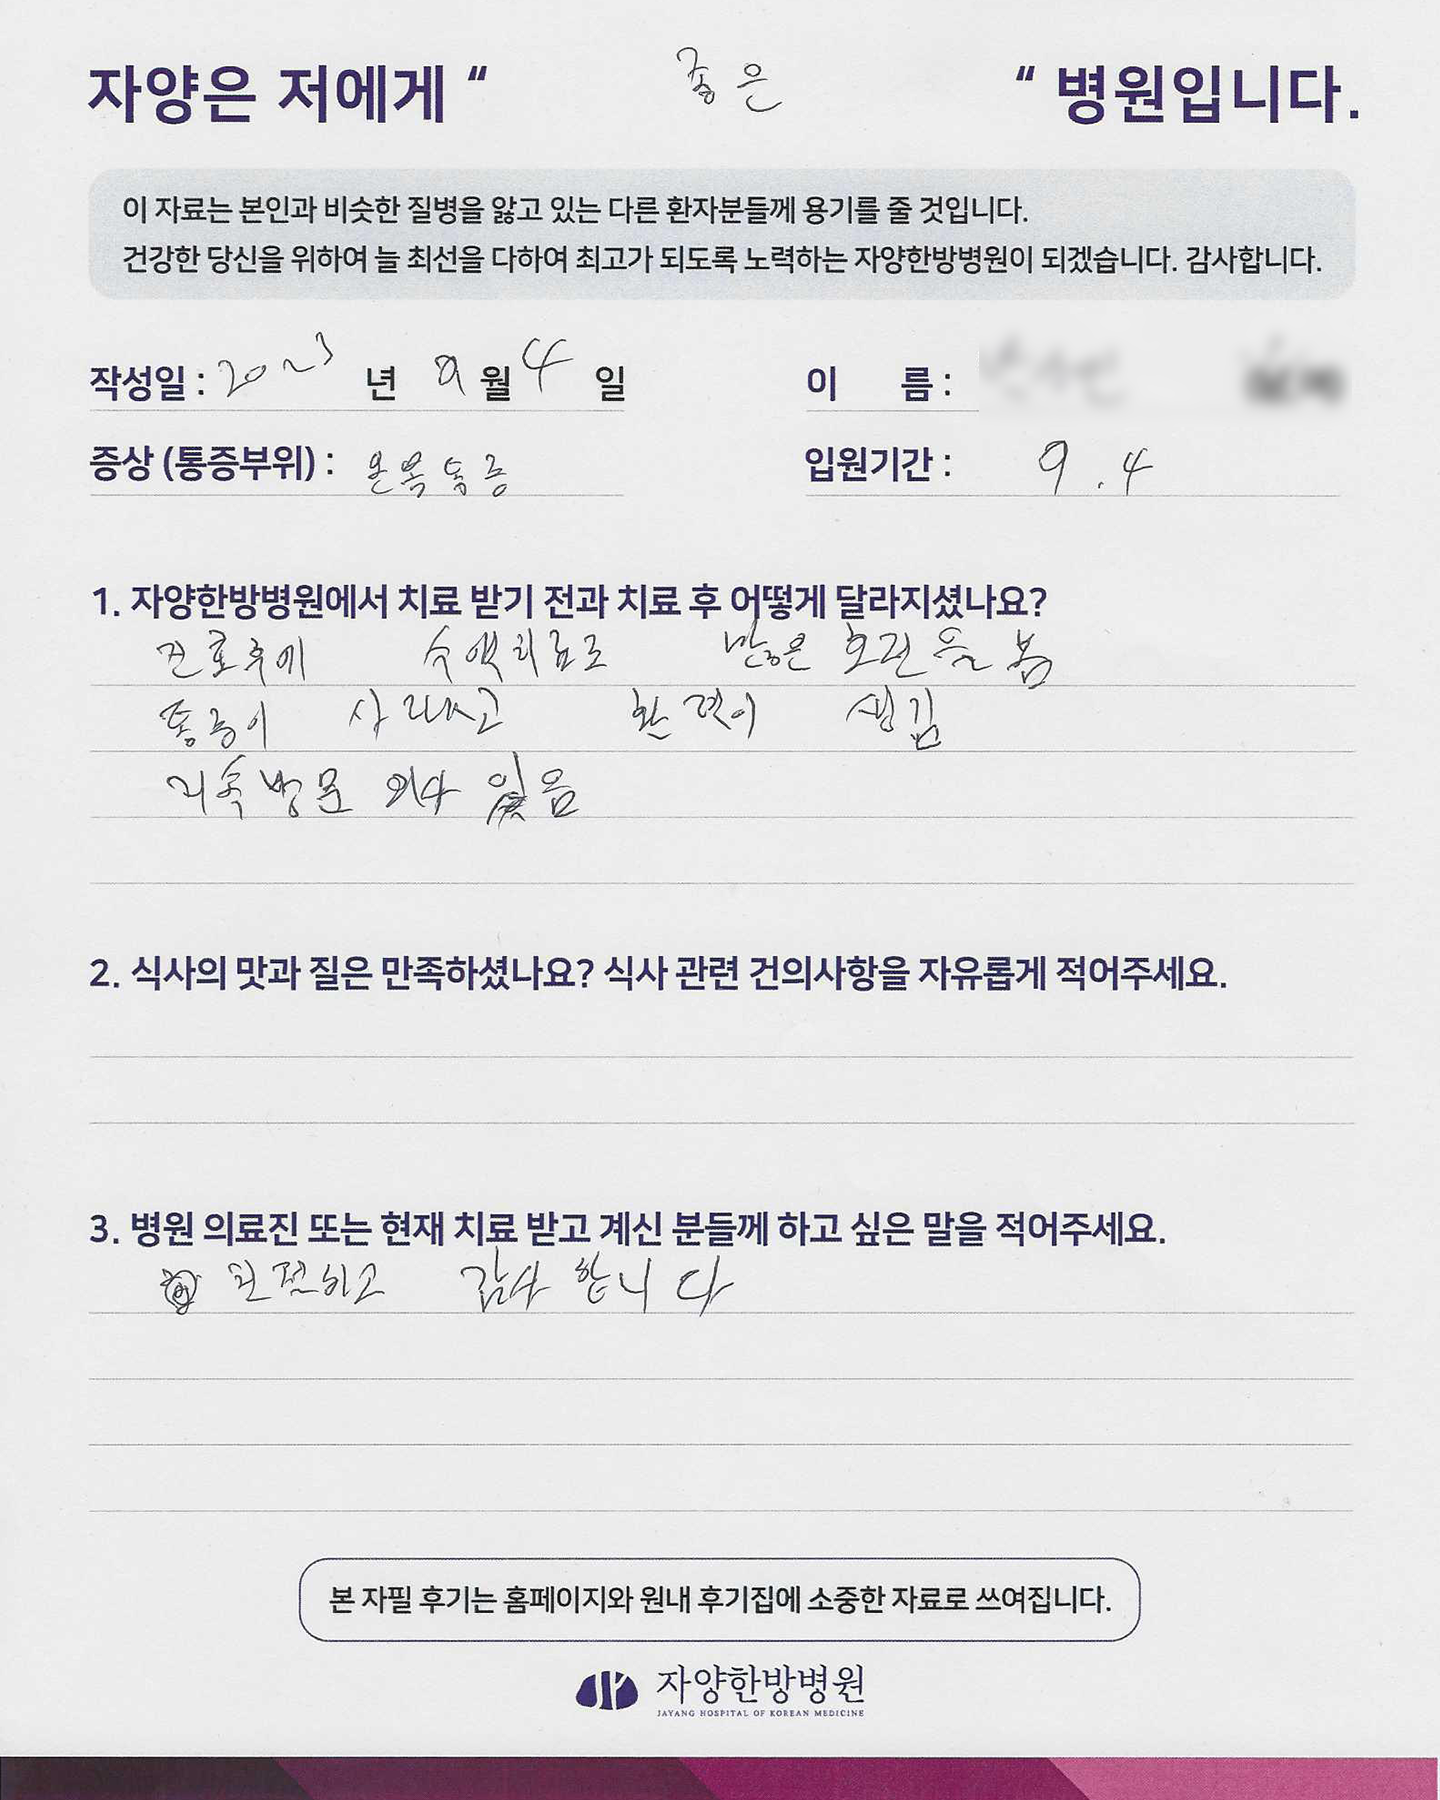 자양은 저에게 “ 좋은 “ 병원입니다.
이 자료는 본인과 비슷한 질병을 앓고 있는 다른 환자분들께 용기를 줄 것입니다.
건강한 당신을 위하여 늘 최선을 다하여 최고가 되도록 노력하는 자양한방병원이 되겠습니다. 감사합니다.
작성일 : 2023 년 9월 4 일 이 름 :
증상 (통증부위) : 온몸통증 입원기간 : 9.4
1. 자양한방병원에서 치료 받기 전과 치료 후 어떻게 달라지셨나요?
진료후에 수액치료로 많은 호전을 봄
통증이 사라지고 활력이 생김
지속방문 의사 있음
2. 식사의 맛과 질은 만족하셨나요? 식사 관련 건의사항을 자유롭게 적어주세요.
3. 병원 의료진 또는 현재 치료 받고 계신 분들께 하고 싶은 말을 적어주세요.
친절하고 감사합니다
본 자필 후기는 홈페이지와 원내 후기집에 소중한 자료로 쓰여집니다.
자양한방병원
JAYANG HOSPITAL OF KOREAN MEDICINE